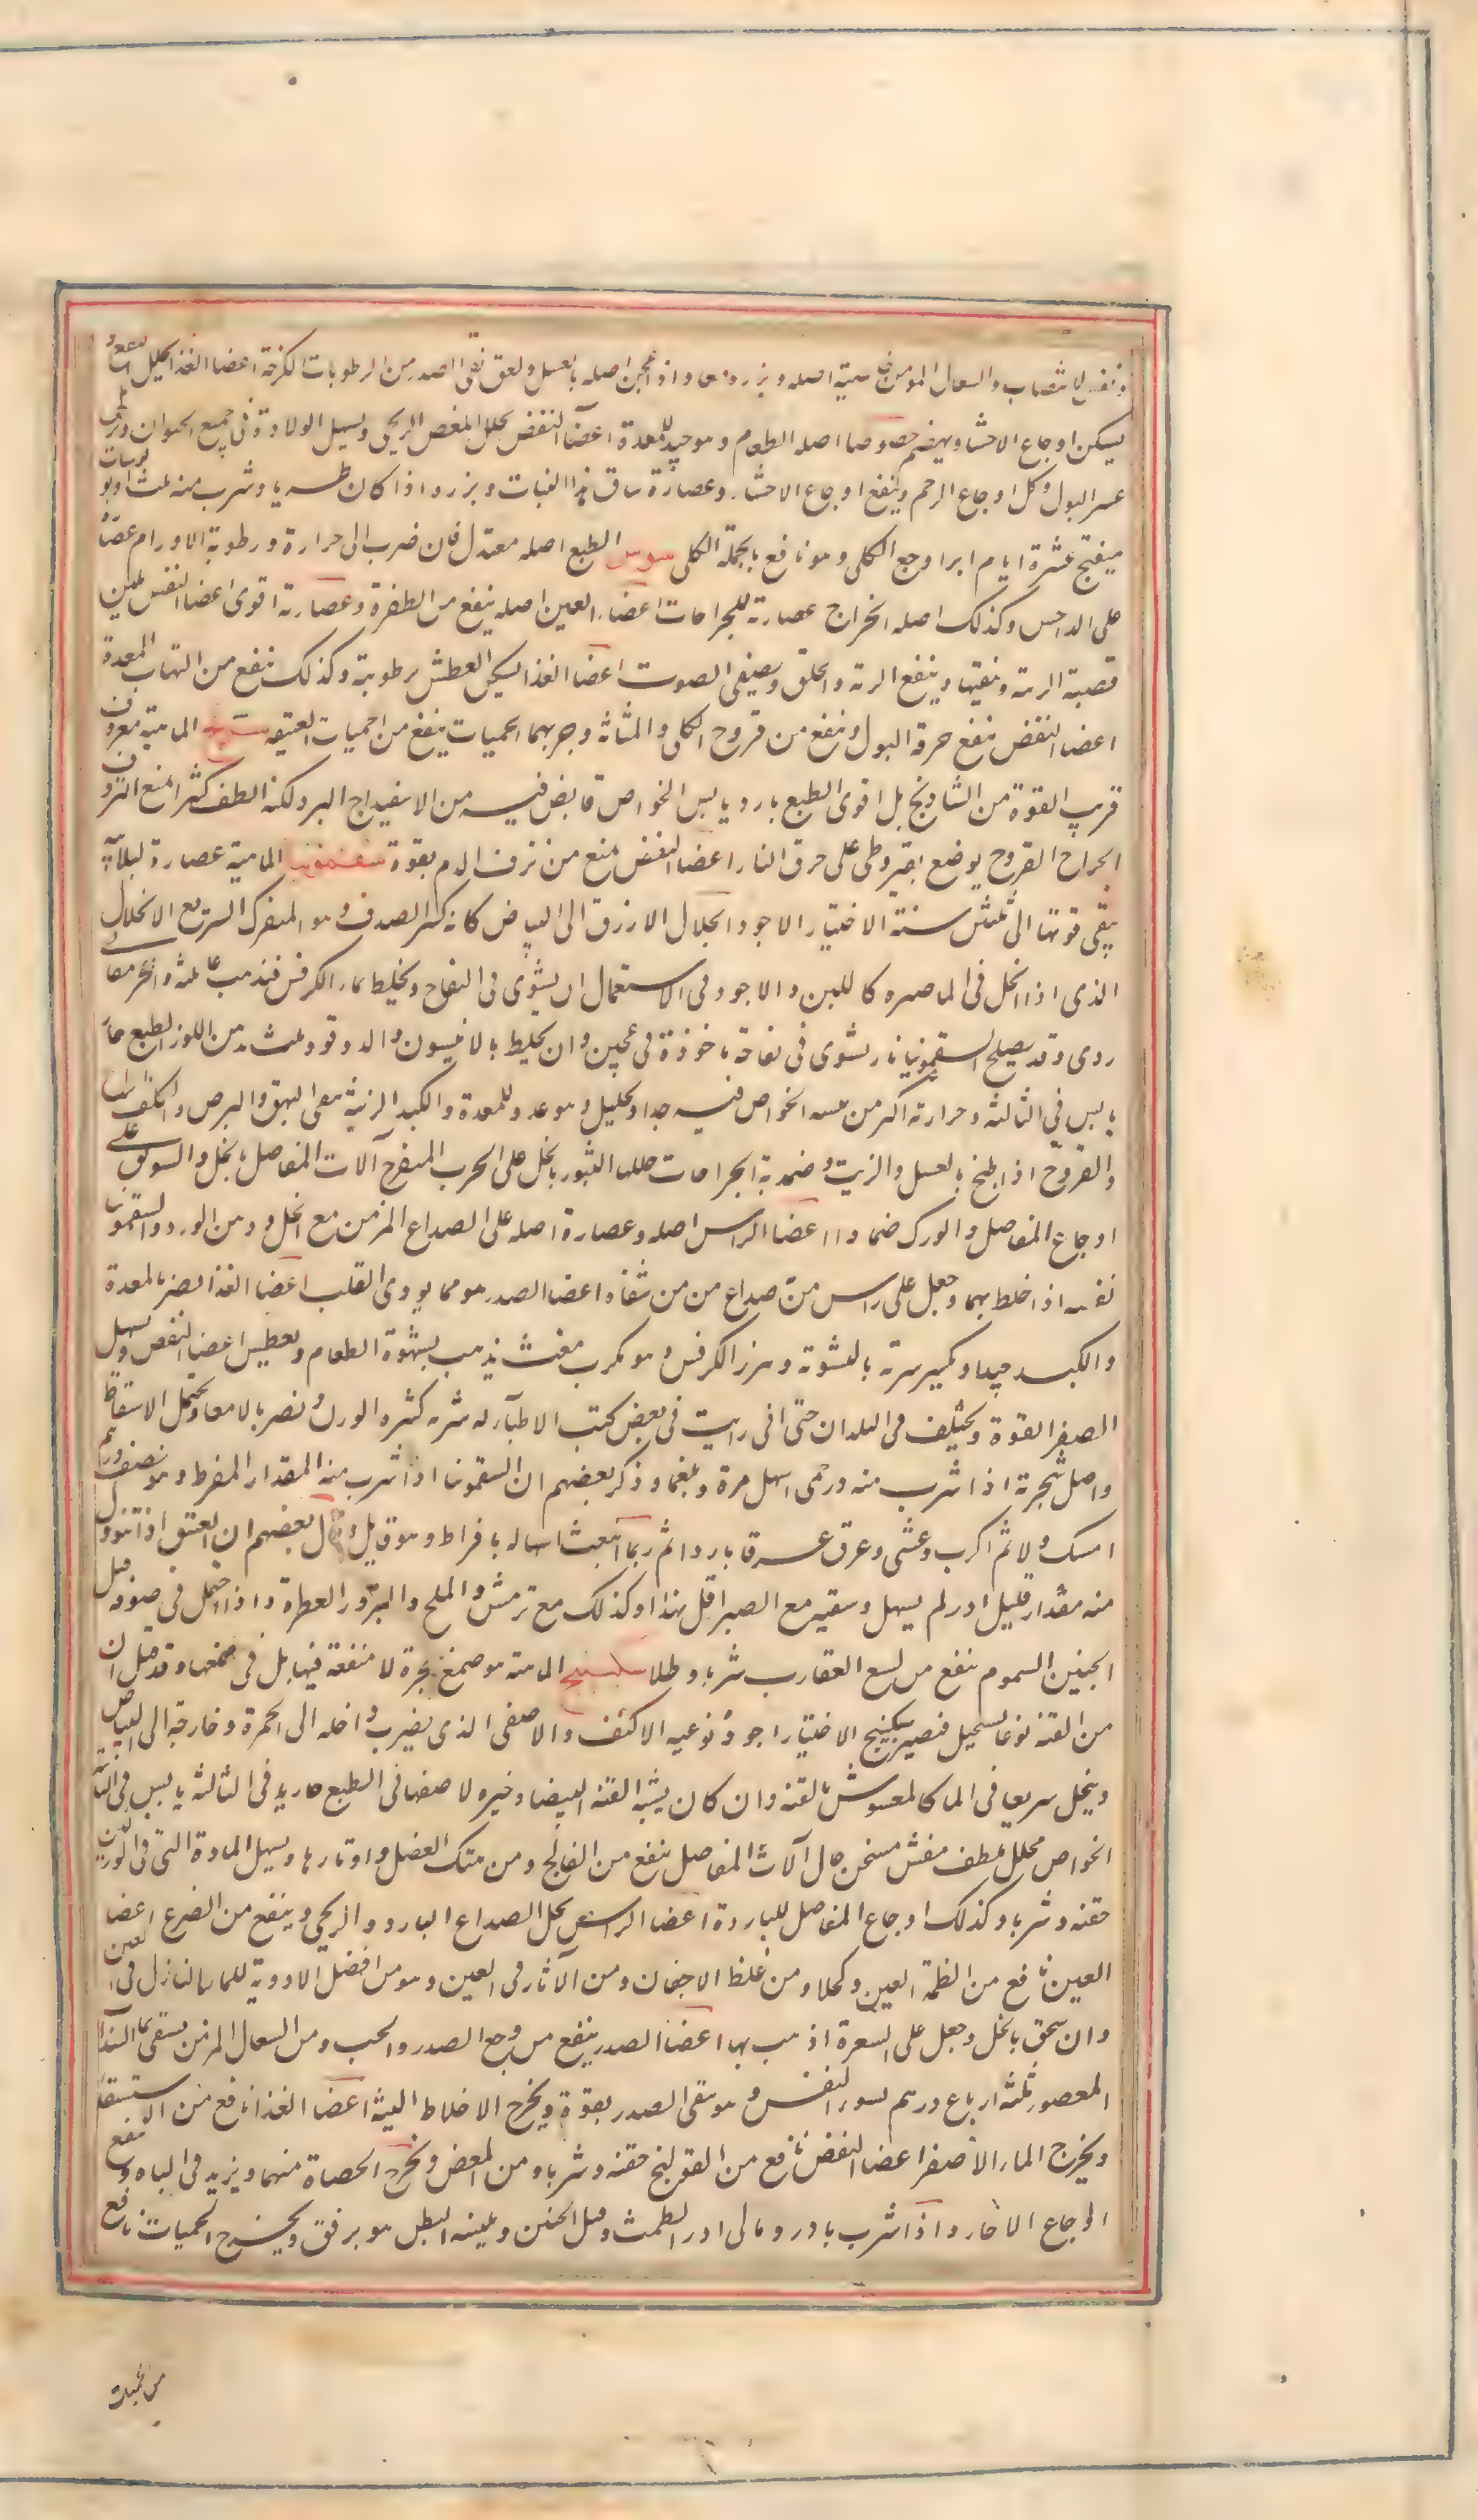 و نفع الانتصاب والسعال المزمن خاصية اصله و بزره معا و اذا عجن اصله بالعسل ولعق نقى الصدر من الرطوبات اللزجة اعضا الغذا
يسكن اوجاع الاحشا و يهضم خصوصا اصله الطعام و هو جيد للمعدة اعضآ النفض يحلل المغص الريحى و يسهل الولادة فى جميع الحيوان
عسر البول و كل اوجاع الرحم و ينفع اوجاع الاحشا و عصارة ساق هذا النبات و بزره اذا كان طريا و شرب منه ثلث اوبولوسات
ميفتج عشرة ايام ابرا وجع الكلى و هو نافع بالجملة الكلى سوس الطبع اصله معتدل فان ضرب الى حرارة و رطوبة الاورام عصارته
على الداحس و كذلك اصله الخراج عصارته للجراحات اعضاء العين اصله ينفع من الظفرة و عصارته اقوى اعضا النفس يلين
قصبة الرئة و ينقيها و ينفع الرئة و الحلق و يصفى الصوت اعضا الغذا يسكن العطش برطوبته و كذلك ينفع من التهاب المعدة
اعضا النفض ينفع حرقة البول و ينفع من قروح الكلى و المثانة و جربهما الحميات ينفع من الحميات العتيقة الماهية معروف
قريب القوة من الشاذنج بل اقوى الطبع بارد يابس الخواص قابض فيه من الاسفيداج البرد لكنه الطف كثيرا يمنع النزف
الجراح القروح يوضع بقيروطى على حرق النار اعضا النفض يمنع من نزف الدم بقوة سقمونيا الماهية عصارة لبلاب
يبقى قوتها الى ثلثين سنة الاختيار الاجود الجلال الازرق الى البياض كانه كسر الصدف و هو المنفرك السريع الانحلال
الذى اذا انحل فى الما صيره كاللبن و الاجود فى الاستعمال ان يشوى فى التفاح و يخلط بماء الكرفس فيذهب
ردى و قد يصلح السقمونيا بان يشوى فى تفاحة ماخوذة فى عجين و ان يخلط بالانيسون و الدوقو و ثلث من اللوز الطبع حار
يابس فى الثالثة و حرارته اكثر من يبسه الخواص فيه جلاء و تحليل و هو عدو للمعدة و الكبد الزينة ينقى البهق و البرص و الكلف
و القروح اذا طبخ بالعسل و الزيت و ضمد به الجراحات حللها البثور بالخل على الجرب المتقرح آلات المفاصل بالخل و السويق على
اوجاع المفاصل و الورك ضمادا اعضا الراس اصله و عصارة اصله على الصداع المزمن مع الخل و دهن الورد و السقمونيا
نفسه اذا خلط بهما و جعل على راس من به صداع مزمن شفاه اعضا الصدر هو مما يوذى القلب اعضا الغذا يضر بالمعدة
و الكبد جيدا و يكسر سرته بالشوية و بزر الكرفس و هو مكرب مغث يذهب بشهوة الطعام و يعطش اعضا النفض يسهل
الصفرا بقوة و يختلف فى البلدان حتى انى رايت فى بعض كتب الاطبآ له شربة كثيرة الوزن و يضر بالامعا و يحمل الاسقاط
و اصل شجرته اذا شرب منه درخمى اسهل مرة و بلغما و ذكر بعضهم ان السقمونيا اذا شرب منه المقدار المفرط و هو نصف درهم
امسك اولا ثم اكرب و غشى و عرق عرقا باردا ثم ربما انبعث اسهاله بافراط و هو قاتل و قال بعضهم ان العتيق اذا تنوول
منه مقدار قليل ادر لم يسهل و سقيه مع الصبر اقل هذا و كذلك مع ترمس و الملح و البزور العطرة و اذا احتمل فى صوفة قتل
الجنين السموم ينفع من لسع العقارب شربا و طلا سكبينج الماهية هو صمغ شجرة لا منفعة فيها بل فى صمغها و قد قيل ان
من القنة نوعا يستحيل فيصير سكبينج الاختيار اجود نوعيه الاكثف و الاصفى الذى يضرب داخله الى الحمرة و خارجه الى البياض
و ينحل سريعا فى الما كالمغشوش بالقنة و ان كان يشبه القنة البيضا و خيره الاصفهانى الطبع حار يد فى الثالثة يابس فى الثانية
الخواص محلل ملطف مفش مسخن جال آلات المفاصل ينفع من الفالج و من هتك العضل و اوتارها و يسهل المادة التى فى الوركين
حقنه و شربا و كذلك اوجاع المفاصل للباردة اعضا الراس يحل الصداع البارد و الريحى و ينفع من الصرع اعضا
العين نافع من الظلمة العين كحلا و من غلظ الاجفان و من الآثار فى العين و هو من افضل الادوية للماء النازل فى العين
و ان سحق بالخل و جعل على الشعيرة اذهب بها اعضا الصدر ينفع من وجع الصدر و الجنب و من السعال المزمن يسقى بما السذاب
المعصور ثلثة ارباع درهم لسوء النفس و هو ينقى الصدر بقوة و يخرج الاخلاط النيئة اعضا الغذا نافع من الاستسقا
و يخرج الماء الاصفر اعضا النفض نافع من القولنج حقنه و شربا و من المغص و يخرج الحصاة منهما و يزيد فى الباه و ينفع
اوجاع الارحام و اذا شرب بادرومالى ادر الطمث و قتل الجنين و يلينه البطن هو برفق و يخرج الحميات نافع
من الحميات